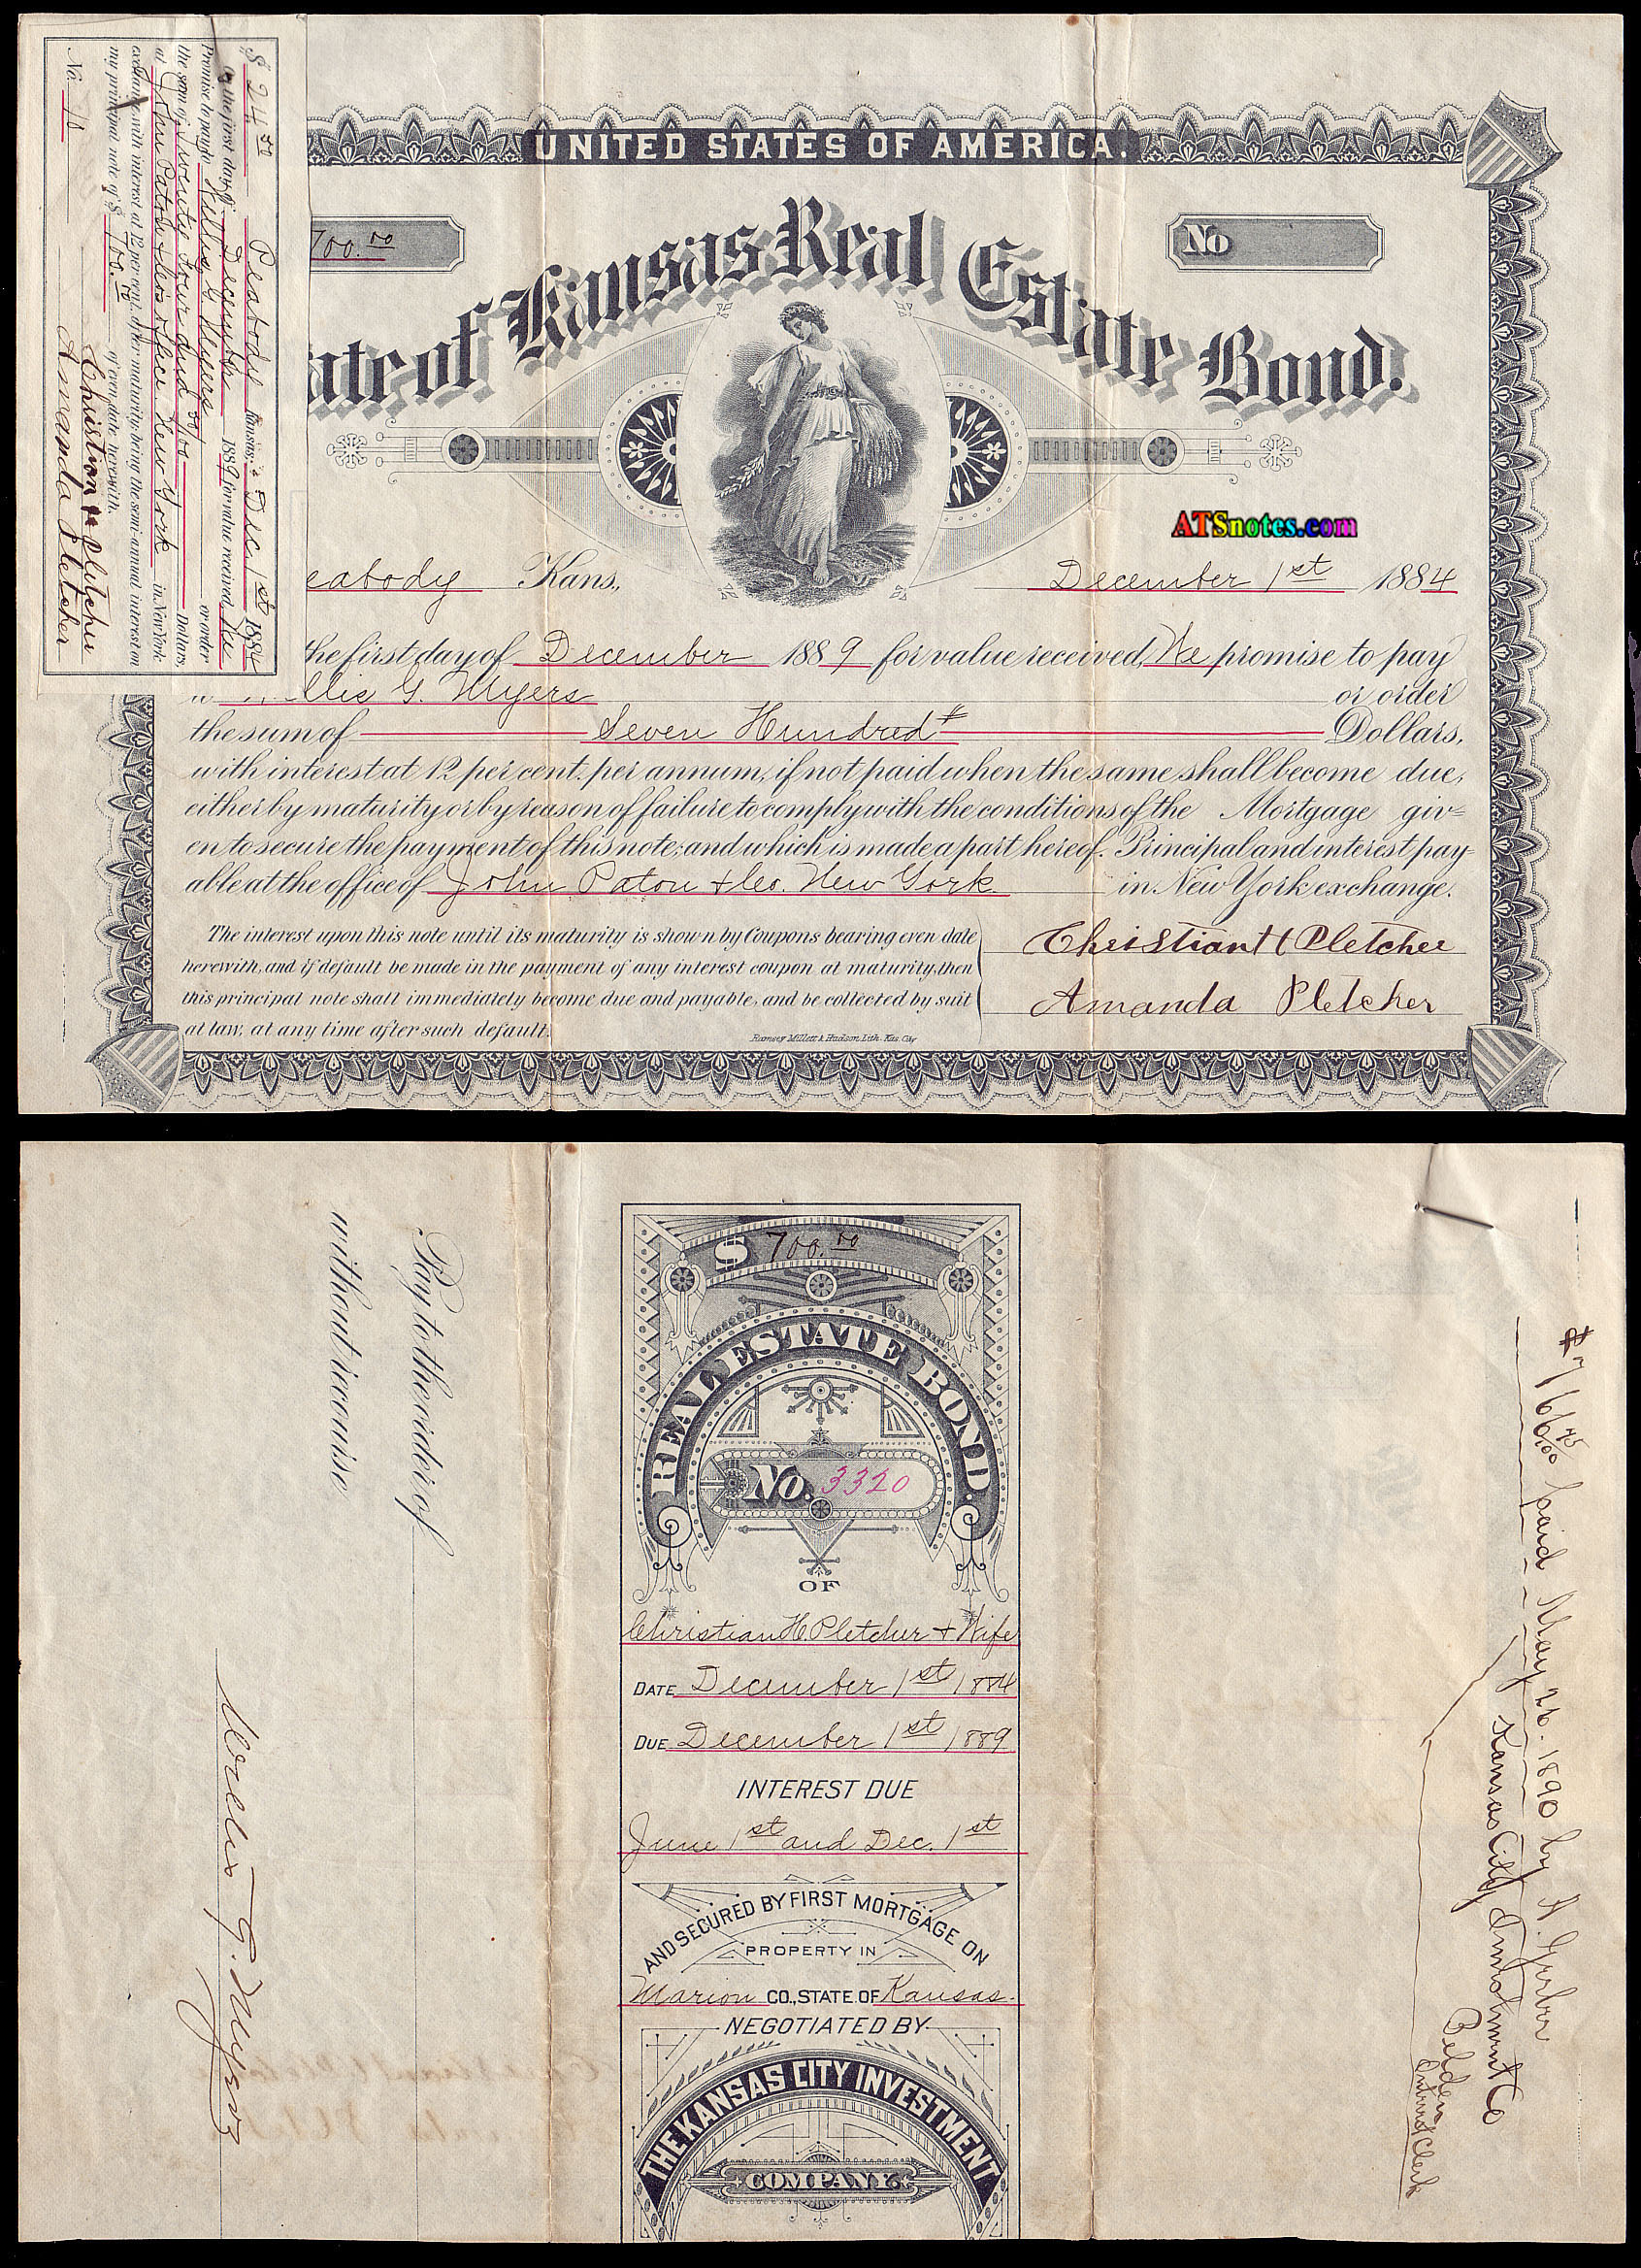 $ 24 50 Peabody Kansas, Dec. 1st 1884
On the first day of December 1889 for value received We
Promise to pay to Willis G. Myers or order
the sum of Twenty four and 50/100 Dollars,
at John Paton & Co's office New York in New York
exchange, with interest at 12 per cent. after maturity, being the semi-annual interest on
my principal note of $ 700.00 of even date herewith.
Christian H Pletcher
No. 10 Amanda Pletcher
UNITED STATES OF AMERICA.
700.00
No
ate of Kansas Real Estate Bond.
ATSnotes.com
eabody Kans., December 1st 1884
the first day of December 1889 for value received, We promise to pay
llis G. Myers or order
the sum of Seven Hundred Dollars,
with interest at 12 per cent. per annum, if not paid when the same shall become due,
either by maturity or by reason of failure to comply with the conditions of the Mortgage giv-
en to secure the payment of this note; and which is made a part hereof. Principal and interest pay-
able at the office of John Paton & Co. New York in New York exchange.
The interest upon this note until its maturity is shown by Coupons bearing even date
herewith, and if default be made in the payment of any interest coupon at maturity, then
this principal note shall immediately become due and payable, and be collected by suit
at law, at any time after such default.
Christian H Pletcher
Amanda Pletcher
Ramsey Millett & Hudson Lith. Kas. City
Pay to the order of
without recourse
G. Myers
$ 700.00
REAL ESTATE BOND.
No. 3320
OF
Christian H. Pletcher & Wife
DATE December 1st 1884
DUE December 1st 1889
INTEREST DUE
June 1st and Dec. 1st
AND SECURED BY FIRST MORTGAGE ON
PROPERTY IN
Marion CO., STATE OF Kansas.
NEGOTIATED BY
THE KANSAS CITY INVESTMENT
COMPANY.
$766 75/100 paid May 26. 1890 by
Kansas City Investment Co
Belden